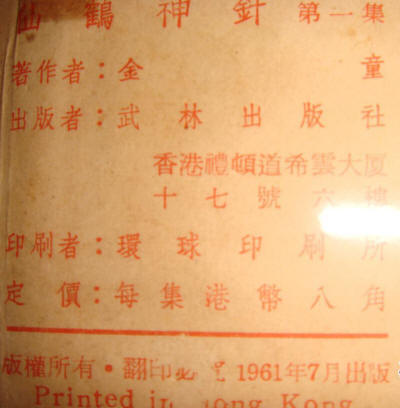 仙鶴神針 第一集
著作者：金童
出版者：武林出版社
香港禮頓道希雲大厦
十七號六樓
印刷者：環球印刷所
定價：每集港幣八角
版權所有·翻印必 1961年7月出版
Printed in Hong Kong